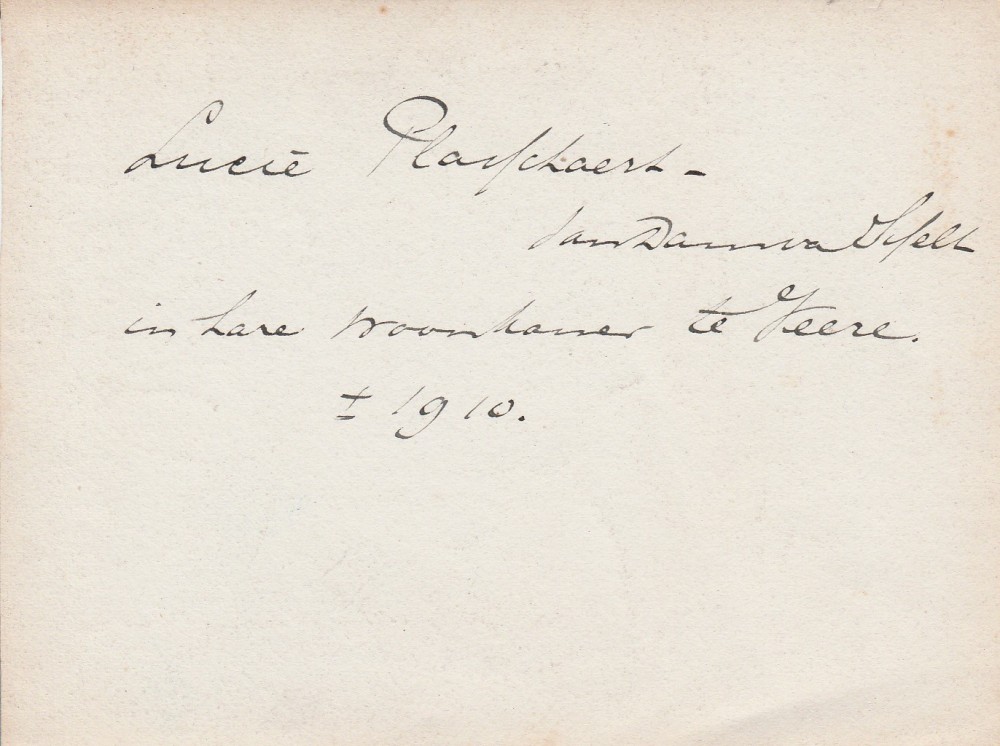 Lucie Plasschaert -
van Dam van Isselt
in hare woonkamer te Veere.
± 1910.